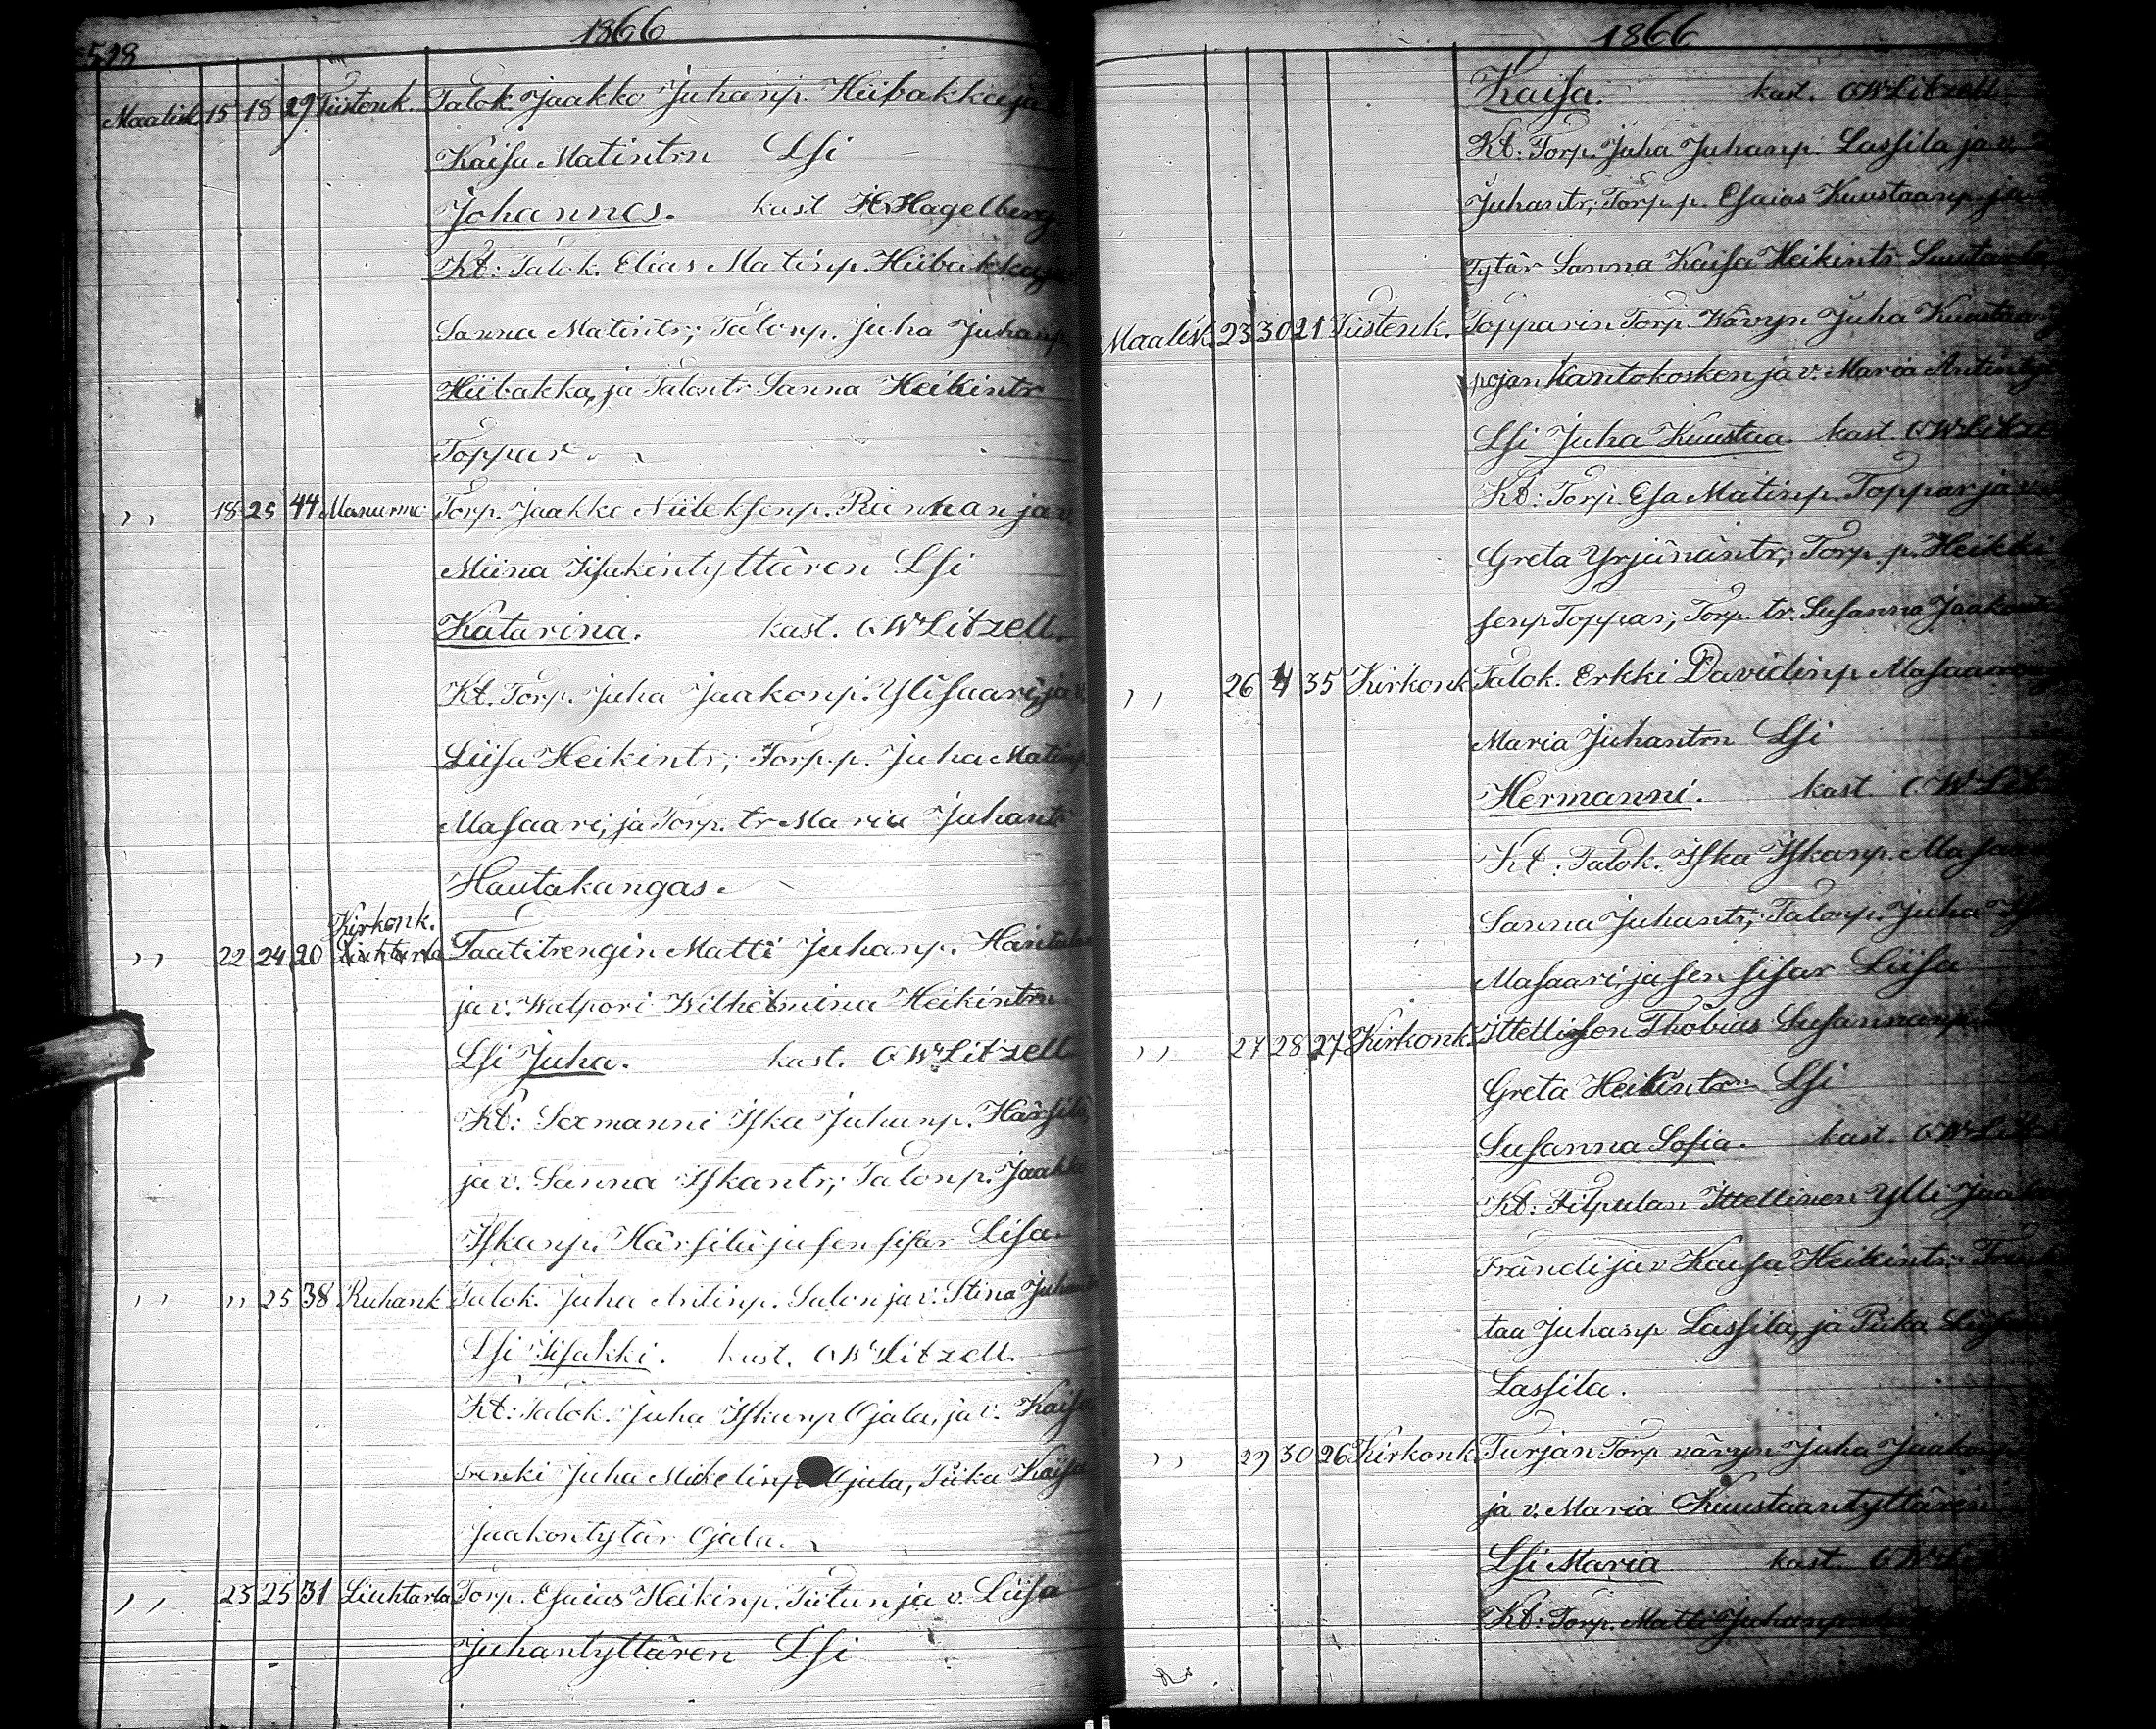 598
1866
Maalisk. 15 18 29 Tiistenk. Talok. Jaakko Juhanp. Hiibakka ja
Kaisa Matintrn Lsi
Johannes. kast H. Hagelberg
Kt: Talok. Elias Matinp. Hiibakka ja
Sanna Matintr; Talonp. Juha Juhanp.
Hiibakka, ja Talontr Sanna Heikintr
Toppar.
,, 18 25 44 Menkijärvi Torp. Jaakko Niileksenp. ja v.
Miina Iisakintyttären Lsi
Katarina. kast. OW Litzell.
Kt. Torp. Juha Jaakonp. Ylisaari, ja v.
Liisa Heikintr; Torp. p. Juha Matinp.
Masaari, ja Torp. tr Maria Juhantr
Hautakangas.
Kirkonk.
,, 22 24 20 Liuhtarla Taatitrengin Matti Juhanp.
ja v. Walpori Wilhelmina Heikintrn
Lsi Juha. kast. OW Litzell
Kt: Sexmanni Iska Juhanp. Härsilä,
ja v. Sanna Iskantr; Talonp. Jaakko
Iskanp. Härsilä ja sen sisar Lisa.
,, ,, 25 38 Ruhank Talok. Juha Antinp. Salon ja v. Stina
Lsi Iisakki. kast. OW Litzell.
Kt: Talok. Juha Iskanp Ojala, ja v. Kaisa
trenki Juha Mickelinp Ojala, Piika Kaisa
Jaakontytär Ojala.
,, 23 25 31 Liuhtarla Torp. Esaias Heikinp. Tiitun ja v. Liisa
Juhantyttären Lsi
1866
Kaisa. kast. OW Litzell
Kt: Torp. Juha Juhanp. Lassila ja v.
Juhantr; Torp. p. Esaias Kuustaanp. ja
Tytär Sanna Kaisa Heikintr
Maalisk. 23 30 21 Tiistenk. Topparin Torp. Wävyn Juha Kuustaan
pojan Kantokosken ja v. Maria Antinty
Lsi Juha Kuustaa. kast. OW Litzell
Kt: Torp. Esa Matinp. Toppar ja v.
Greta Yrjänäntr; Torp. p. Heikki
senp Toppar; Torp. tr. Susanna
,, 26 4 35 Kirkonk. Talok. Erkki Davidinp Masaaren
Maria Juhantrn Lsi
Hermanni. kast OW
Kt: Talok. Iska Iskanp.
Sanna Juhantr; Talonp. Juha
Masaari, ja sen sisar Liisa
,, 27 28 27 Kirkonk. Ittellisen Thobias Susannanp.
Greta Heikintrn Lsi
Susanna Sofia. kast. OW
Kt: Filpulan Ittellinen Ylli
Frändi ja v. Kaisa Heikintr;
taa Juhanp Lassila, ja Piika
Lassila.
,, 29 30 26 Kirkonk. Turjan Torp vävyn Juha
ja v. Maria Kuustaantyttären
Lsi Maria kast. OW
Kt: Torp. Matti Juhanp